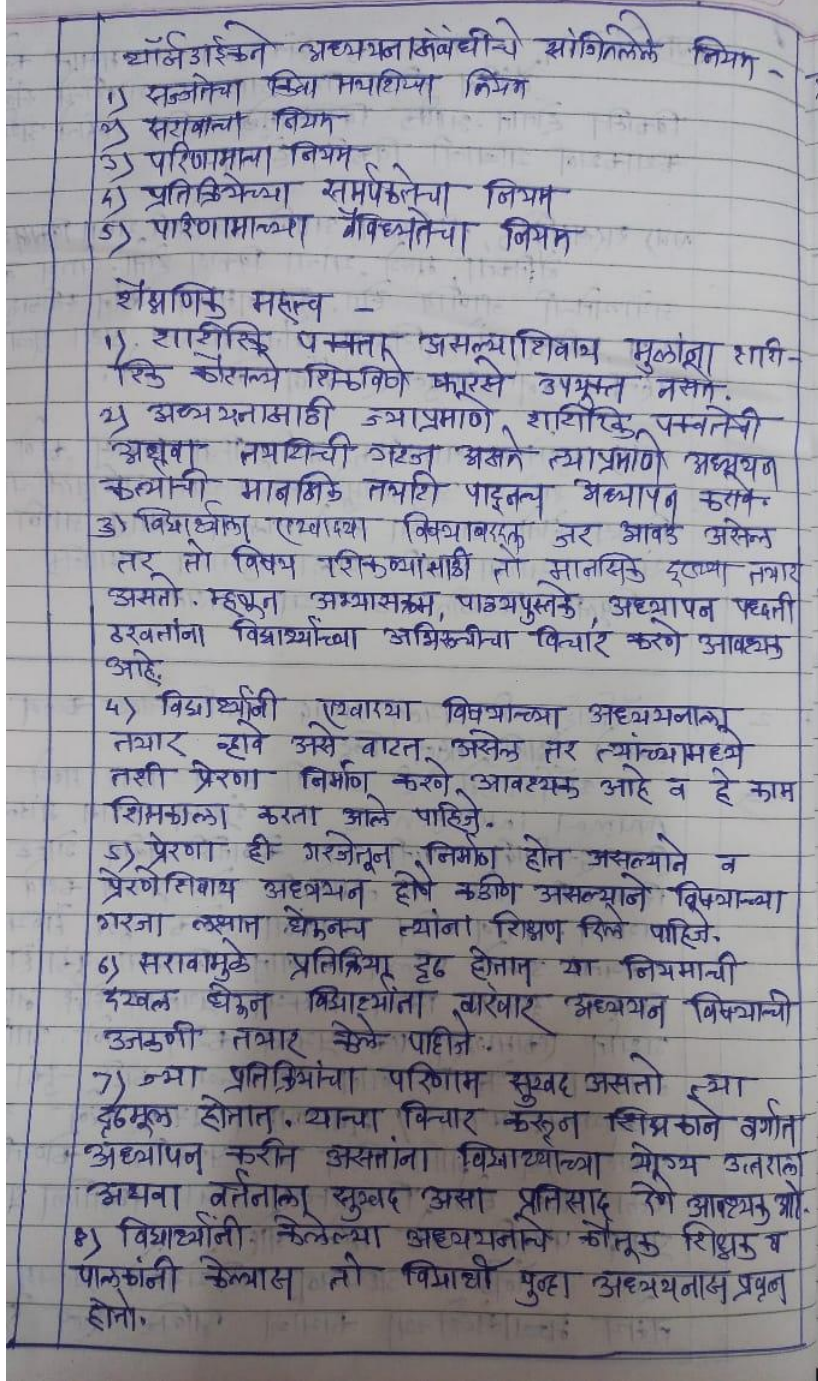 थॉर्नडाईकने अध्ययनासंबंधीचे सांगितलेले नियम -
1) सज्जतेचा किंवा तयारीचा नियम
2) सरावाचा नियम
3) परिणामाचा नियम
4) प्रतिक्रियेच्या समर्पकतेचा नियम
5) परिणामाच्या वैविध्यतेचा नियम
शैक्षणिक महत्त्व -
1) शारीरिक पक्वता असल्याशिवाय मुलांना शारि-
रिक कौशल्ये शिकविणे फारसे उपयुक्त नसते.
2) अध्ययनासाठी ज्याप्रमाणे शारीरिक पक्वतेची
अथवा तयारीची गरज असते त्याप्रमाणे अध्ययन
कर्त्याची मानसिक तयारी पाहूनच अध्यापन करावे.
3) विद्यार्थ्याला एखाद्या विषयाबद्दल जर आवड असेल
तर तो विषय शिकण्यासाठी तो मानसिक दृष्ट्या तयार
असतो. म्हणून अभ्यासक्रम, पाठ्यपुस्तके, अध्यापन पध्दती
ठरवतांना विद्यार्थ्यांच्या अभिरूचीचा विचार करणे आवश्यक
आहे.
4) विद्यार्थ्यांनी एखाद्या विषयाच्या अध्ययनाला
तयार व्हावे असे वाटत असेल तर त्यांच्यामध्ये
तशी प्रेरणा निर्माण करणे आवश्यक आहे व हे काम
शिक्षकाला करता आले पाहिजे.
5) प्रेरणा ही गरजेतून निर्माण होत असल्याने व
प्रेरणेशिवाय अध्ययन होणे कठीण असल्याने विषयाच्या
गरजा लक्षात घेऊनच त्यांना शिक्षण दिले पाहिजे.
6) सरावामुळे प्रतिक्रिया दृढ होतात या नियमाची
दखल घेऊन विद्यार्थ्यांना वारंवार अध्ययन विषयाची
उजळणी तयार केले पाहिजे.
7) ज्या प्रतिक्रियांचा परिणाम सुखद असतो त्या
दृढमूल होतात. याचा विचार करून शिक्षकाने वर्गात
अध्यापन करीत असतांना विद्यार्थ्याच्या योग्य उत्तराला
अथवा वर्तनाला सुखद असा प्रतिसाद देणे आवश्यक आहे.
8) विद्यार्थ्यांनी केलेल्या अध्ययनाचे कौतूक शिक्षक व
पालकांनी केल्यास तो विद्यार्थी पुन्हा अध्ययनास प्रवृत्त
होतो.